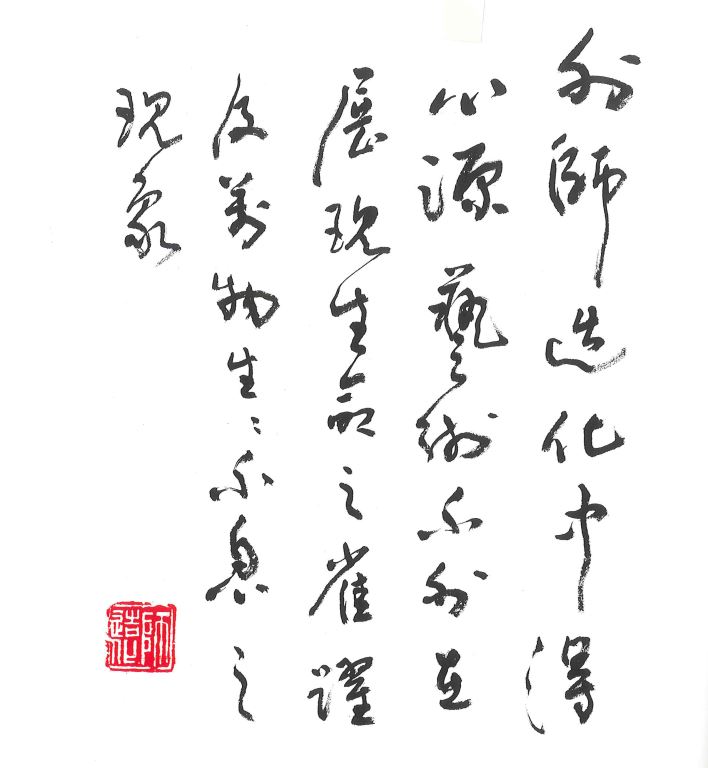 外師造化中得
心源藝術不外在
展現生命之雀躍
及萬物生〻不息之
現象
師造化